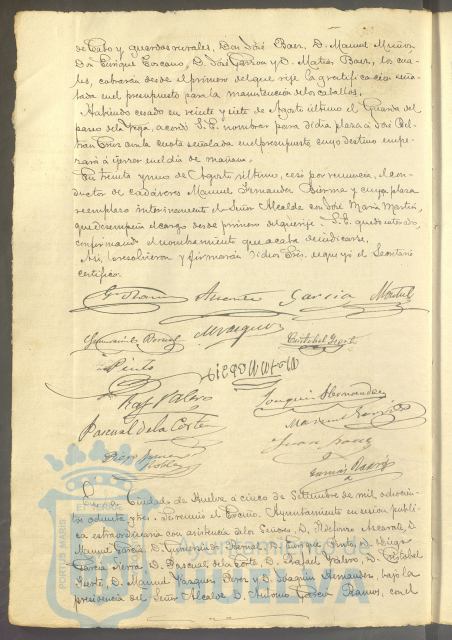 de Cabo y guardas rurales, Don José Baez, D. Manuel Muñoz
Dn Enrique Toscano, D. José Garzon y D. Matias Baez, los cua-
les, cobrarán desde el primero del que rije la gratificacion seña-
lada en el presupuesto para la manutencion de los caballos.
Habiendo cesado en veinte y siete de Agosto último el Guarda del
paseo de la Vega, acordó S.E. nombrar para dicha plaza a José Bel-
tran con la cuota señalada en el presupuesto cuyo destino empe-
zará á ejercer en el dia de mañana.
En treinta y uno de Agosto último, cesó por renuncia, el con-
ductor de cadáveres Manuel Fernandez Bierma y cuya plaza
reemplazó interinamente el Señor Alcalde con José Maria Martin,
que desempeña el cargo desde primero del que rije. S.E. quedó enterado,
confirmando el nombramiento que acaba de indicarse.
Asi lo resolvieron y firmarán dichos Sres. de que yo el Secretario
certifico.
Garcia
Vazquez
Cristobal
Pinto
Raf. Valero
Joaquin Hernandez
Pascual de la Corte
Manuel Garcia
Diego Garcia
Juan
En la Ciudad de Huelva á cinco de Setiembre de mil ochocien-
tos ochenta y tres: Reunido el Excmo. Ayuntamiento en sesion públi-
ca extraordinaria con asistencia de los Señores D. Ildefonso, D.
Manuel Garcia, D. Bernal, D. Enrique Pinto, D. Diego
Garcia, D. Pascual de la Corte, D. Rafael Valero, D. Cristobal
D. Manuel Vazquez Perez y D. Joaquin Hernandez, bajo la
presidencia del Señor Alcalde D. Antonio Garcia Ramos, con el
PORTUS MARIS
Ayuntamiento de
HUELVA